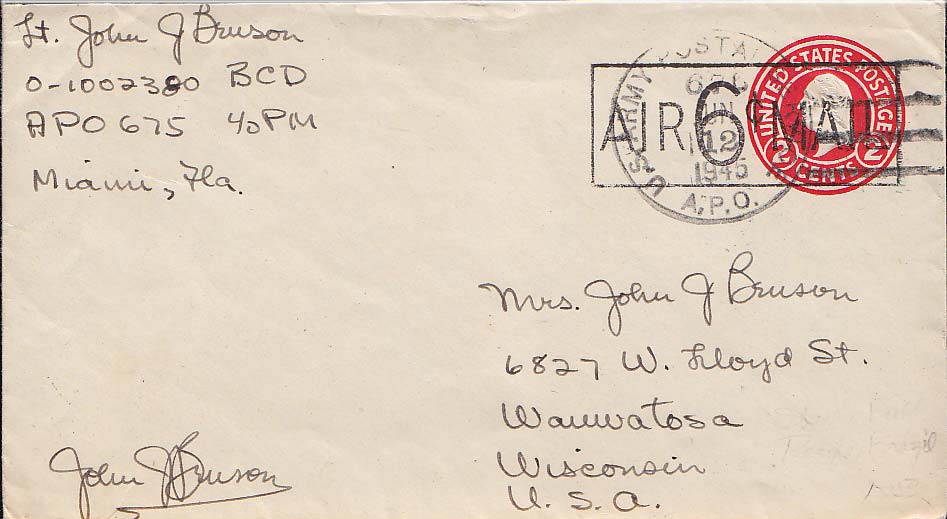 Lt. John J Bruson
O-1002380 BCD
APO 675 %PM
Miami, Fla.
U.S. ARMY POSTAL
JUN
12
1945
A.P.O.
AIR 6¢ MAIL
UNITED STATES POSTAGE
2 CENTS 2
Mrs. John J Bruson
6827 W. Lloyd St.
Wauwatosa
Wisconsin
U. S. A.
John J Bruson